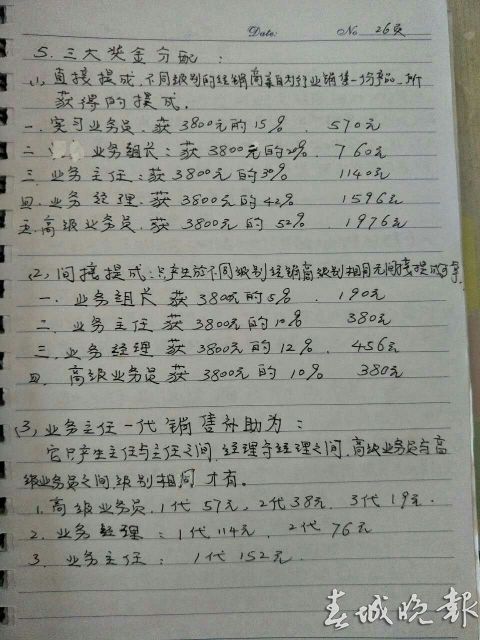 Date: No 26页
5. 三大奖金分配:
(1), 直接提成, 不同级别的经销商亲自为行业销售一份产品, 所
获得的提成.
一. 实习业务员. 获 3800元的 15% . 570元
二 业务组长: 获 3800元的20% . 760元
三. 业务主任: 获 3800元的30% 1140元
四. 业务经理. 获 3800元的 42% 1596元
五. 高级业务员. 获 3800元的 52% . 1976元
(2), 间接提成: 只产生於不同级别经销商级别相同无间接提成
一. 业务组长 获 3800元的5% . 190元
二. 业务主任 获 3800元的 10% 380元
三. 业务经理 获 3800元的 12% . 456元
四. 高级业务员 获 3800元的 10% 380元
(3), 业务主任一代销售补助为:
它只产生主任与主任之间, 经理与经理之间, 高级业务员与高
级业务员之间, 级别相同 才有。
1. 高级业务员, 1代 57元, 2代 38元. 3代 19元.
2. 业务经理: 1代 114元, 2代 76元
3. 业务主任: 1代 152元.
春城晚報